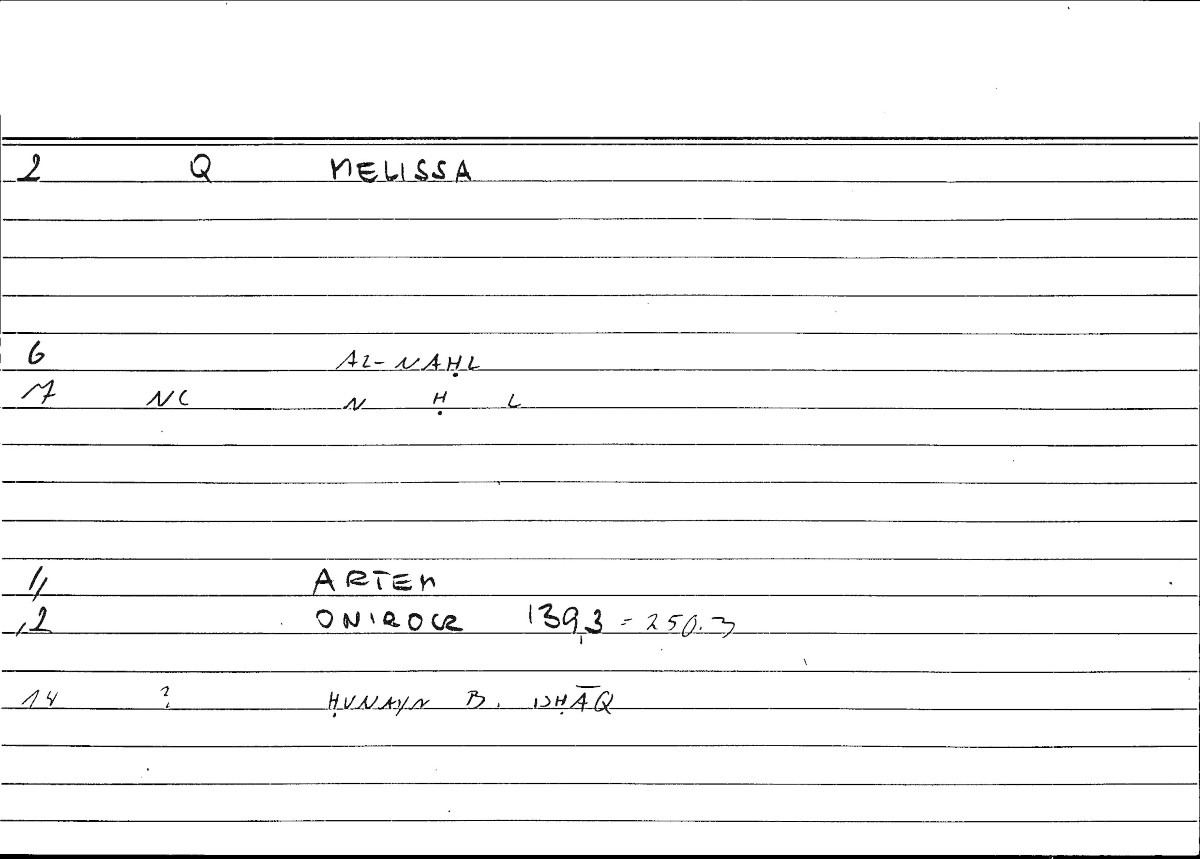 2 Q MELISSA
6 AL-NAḤL
7 NC N Ḥ L
11 ARTEM
12 ONIROCR 139,3 = 250.3
14 ? ḤUNAYN B. ISḤĀQ